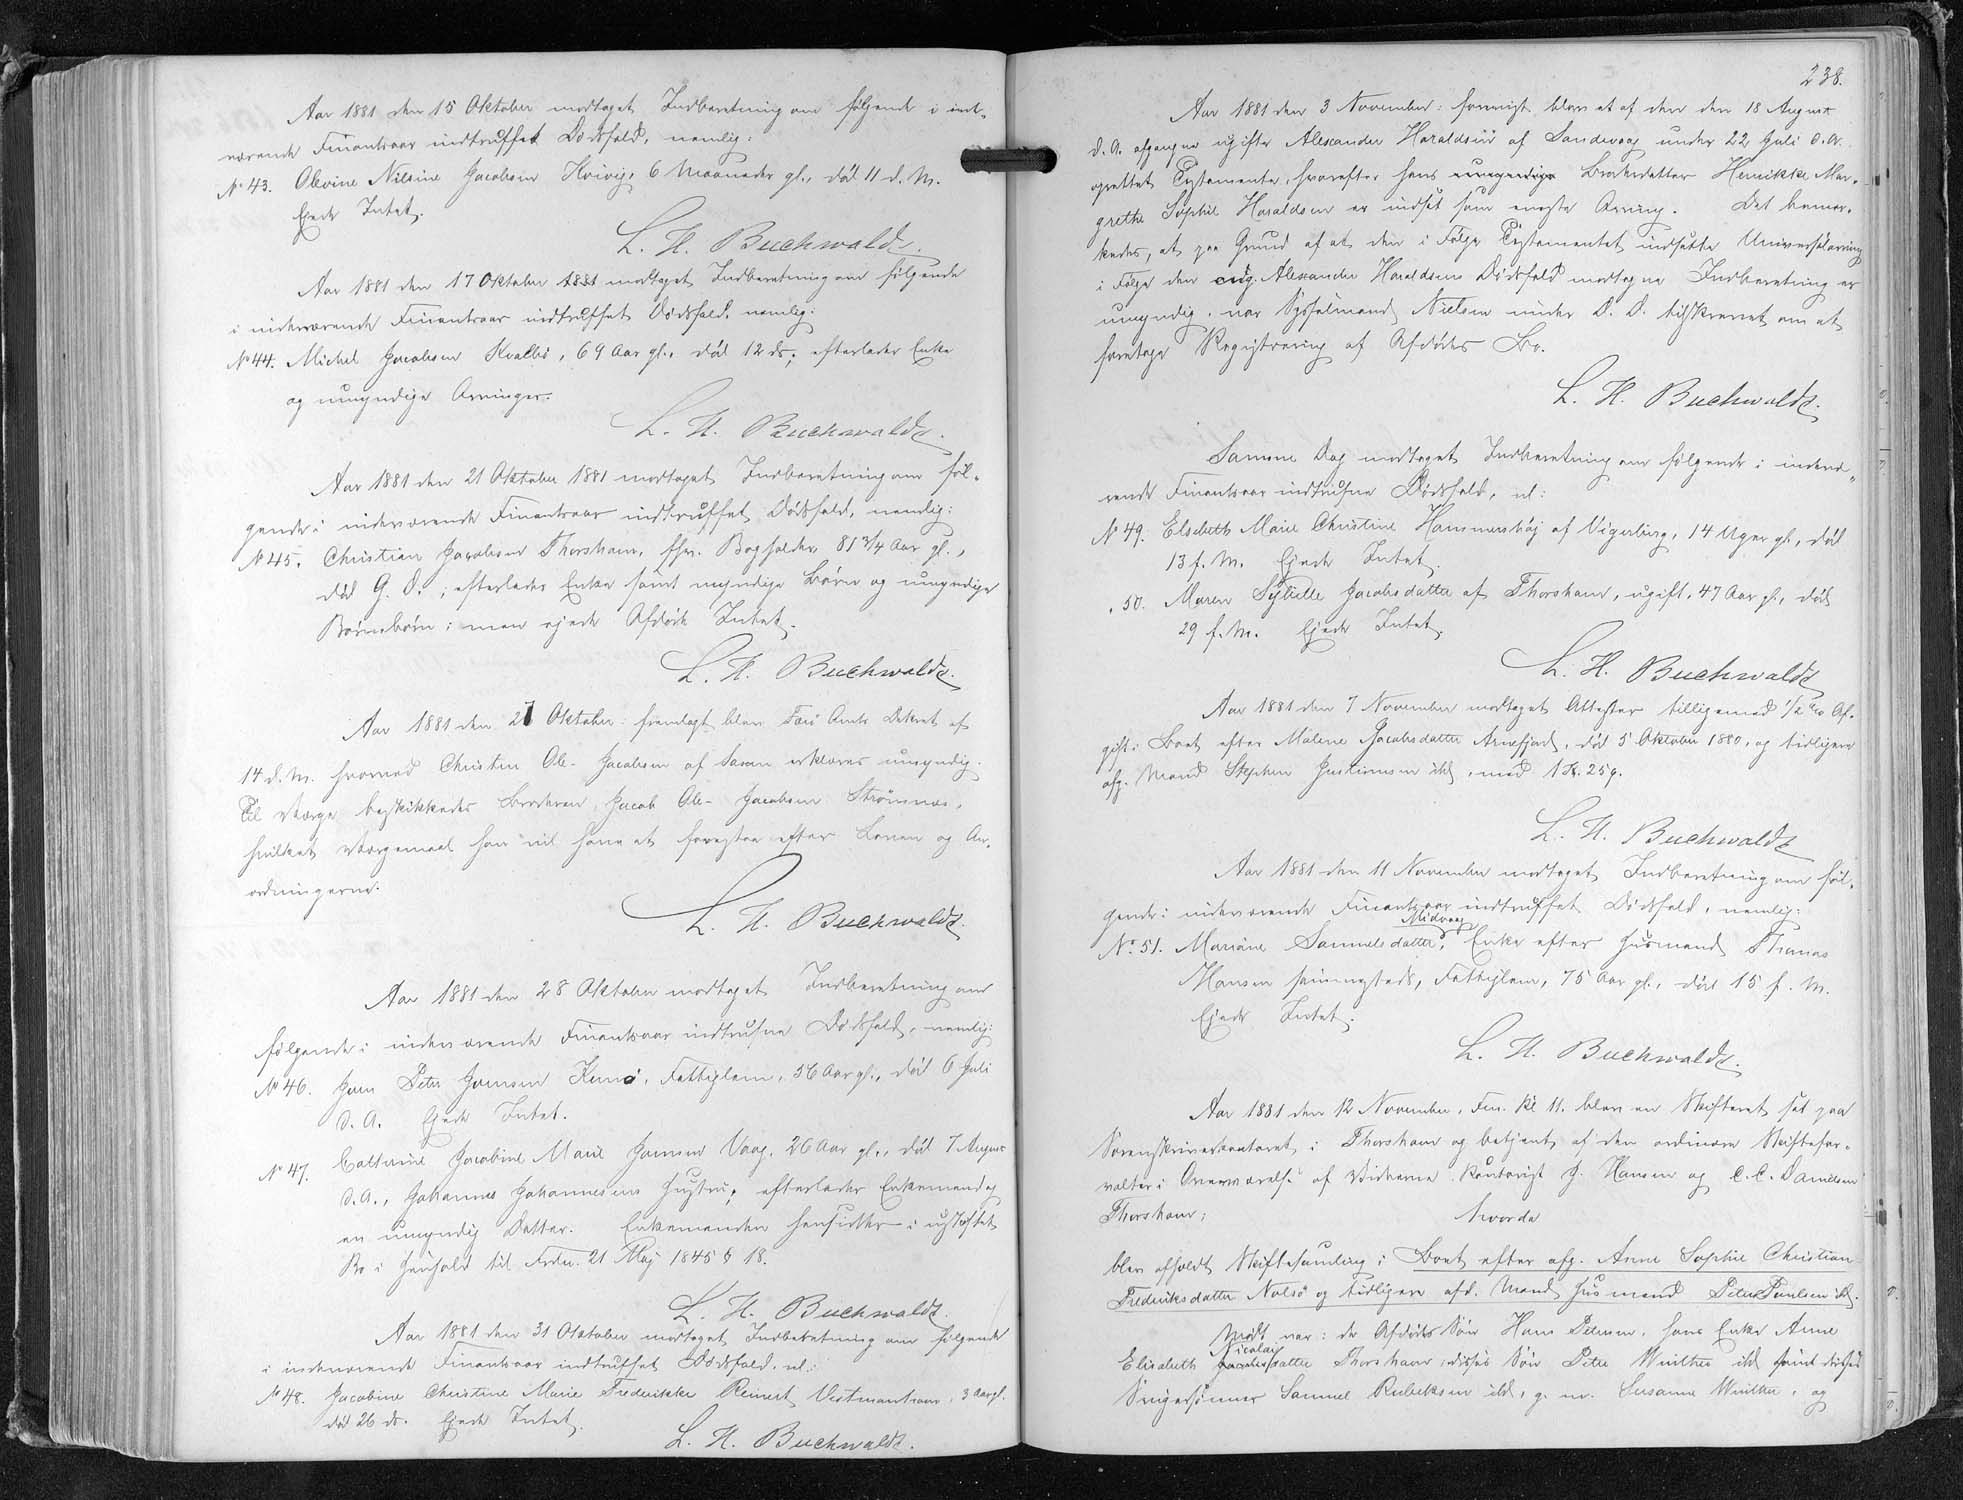 Aar 1881 den 15 Oktober modtaget Indberetning om følgende i inde-
værende Finantsaar indtruffet Dødsfald, nemlig:
No 43. Olevine Nilsine Jacobsen Hvivig, 6 Maaneder gl., død 11 d. M.
Ejede Intet.
L. H. Buchwaldt.
Aar 1881 den 17 Oktober 1881 modtaget Indberetning om følgende
i indeværende Finantsaar indtruffet Dødsfald, nemlig:
No 44. Michel Jacobsen Kvalbø, 69 Aar gl., død 12 ds; efterlader Enke
og umyndige Arvinger.
L. H. Buchwaldt.
Aar 1881 den 21 Oktober 1881 modtaget Indberetning om føl-
gende i indeværende Finantsaar indtruffet Dødsfald, nemlig:
No 45. Christian Jacobsen Thorshavn, fhv. Bogholder, 81 3/4 Aar gl.,
død G. D.; efterlader Enke samt myndige Børn og umyndige
Børnebørn; men ejede Afdøde Intet.
L. H. Buchwaldt.
Aar 1881 den 27 Oktober: fremlagt blev Færø Amts Dekret af
14 d. M. hvorved Christen Ole Jacobsen af Saxen erklæres umyndig.
Til Værge beskikkedes Broderen Jacob Ole Jacobsen Strømnæs,
hvilket Værgemaal han vil have at forestaa efter Loven og An-
ordningerne.
L. H. Buchwaldt.
Aar 1881 den 28 Oktober modtaget Indberetning om
følgende i indeværende Finantsaar indtrufne Dødsfald, nemlig:
No 46. Joen Peter Joensen Kunø, Fattiglem, 56 Aar gl., død 6 Juli
d. A. Ejede Intet.
No 47. Cathrine Jacobine Marie Joensen Vaag, 26 Aar gl., død 7 August
d. A., Johannes Johannesens Hustru; efterlader Enkemand og
en umyndig Datter. Enkemanden hensidder i uskiftet
Bo i Henhold til Frdn. 21 Maj 1845 § 18.
L. H. Buchwaldt
Aar 1881 den 31 Oktober modtaget Indberetning om følgende
i indeværende Finantsaar indtruffet Dødsfald, nl.:
No 48. Jacobine Christine Marie Frederikke Reinert Vestmanhavn, 3 Aar gl.
død 26 ds. Ejede Intet.
L. H. Buchwaldt.
238.
Aar 1881 den 3 November: foreviist blev et af den den 18 August
d. A. afgangne ugifte Alexander Haraldsen af Sandevaag under 22 Juli d. A.
oprettet Testamente, hvorefter hans umyndige Broderdatter Henrikke Mar-
grethe Sophie Haraldsen er indsat som eneste Arving. Det bemær-
kedes, at paa Grund af at den i Følge Testamentet indsatte Universalarving
i Følge den ang. Alexander Haraldsens Dødsfald modtagne Indberetning er
umyndig, var Sysselmand Nielsen under D. D. tilskrevet om at
foretage Registrering af Afdødes Bo.
L. H. Buchwaldt.
Samme Dag modtaget Indberetning om følgende i indevæ-
rende Finantsaar indtrufne Dødsfald, nl:
No 49. Elsebeth Marie Christine Hammershøj af Vigerbirg, 14 Uger gl., død
13 f. M. Ejede Intet.
" 50. Maren Sybille Jacobsdatter af Thorshavn, ugift, 47 Aar gl., død
29 f. M. Ejede Intet.
L. H. Buchwaldt
Aar 1881 den 7 November modtaget Attester tilligemed 1/2 % Af-
gift i Boet efter Malene Jacobsdatter Arnefjord, død 5 Oktober 1880, og tidligere
afg. Mand Stephen Justinussen ibd., med 1 Kr. 25 Ø.
L. H. Buchwaldt
Aar 1881 den 11 November modtaget Indberetning om føl-
gende i indeværende Finantsaar indtruffet Dødsfald, nemlig:
Midvaag
No. 51. Mariane Samuelsdatter, Enke efter Husmand Thomas
Hansen sammesteds, Fattiglem, 75 Aar gl., død 15 f. M.
Ejede Intet.
L. H. Buchwaldt.
Aar 1881 den 12 November, Fm. Kl 11. blev en Skifteret sat paa
Sorenskriverkontoret i Thorshavn og betjent af den ordinære Skiftefor-
valter i Overværelse af Vidnerne Kontorist J. Hansen og C. C. Danielsen
Thorshavn;
hvorda
blev afholdt Skiftesamling i Boet efter afg. Anne Sophie Christian
Frederiksdatter Nolsø og tidligere afd. Mand Husmand Peter Poulsen ibd.
Mødt var: de Afdødes Søn Hans Petersen, hans Enke Anne
Nicolai
Elisabeth Jacobsdatter Thorshavn, disses Søn Peter Winther ibd samt disses
Svigersønner Samuel Rubeksen ibd, g. m. Susanne Winther, og